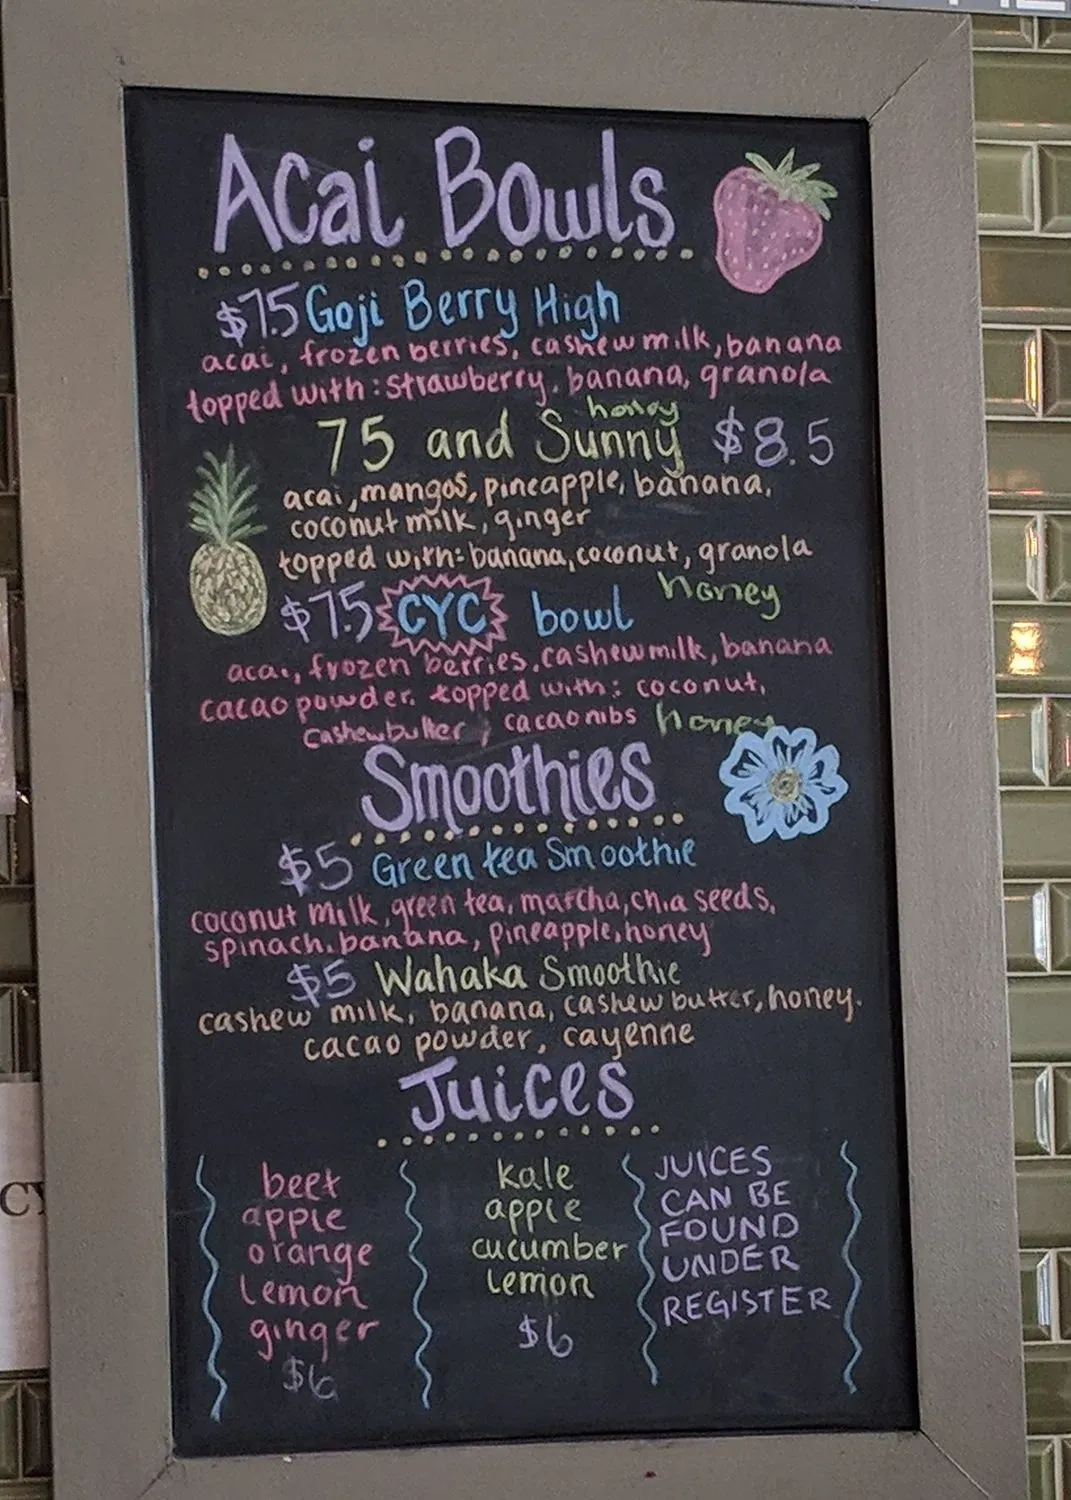 Acai Bowls
$7.5 Goji Berry High
acai, frozen berries, cashew milk, banana
topped with: strawberry, banana, granola
honey
75 and Sunny $8.5
acai, mangos, pineapple, banana,
coconut milk, ginger
topped with: banana, coconut, granola
honey
$7.5 CYC bowl
acai, frozen berries, cashew milk, banana
cacao powder. topped with: coconut,
cashew butter, cacao nibs honey
Smoothies
$5 Green tea Smoothie
coconut milk, green tea, matcha, chia seeds,
spinach, banana, pineapple, honey
$5 Wahaka Smoothie
cashew milk, banana, cashew butter, honey,
cacao powder, cayenne
Juices
beet
apple
orange
lemon
ginger
$6
kale
apple
cucumber
lemon
$6
JUICES
CAN BE
FOUND
UNDER
REGISTER
CY